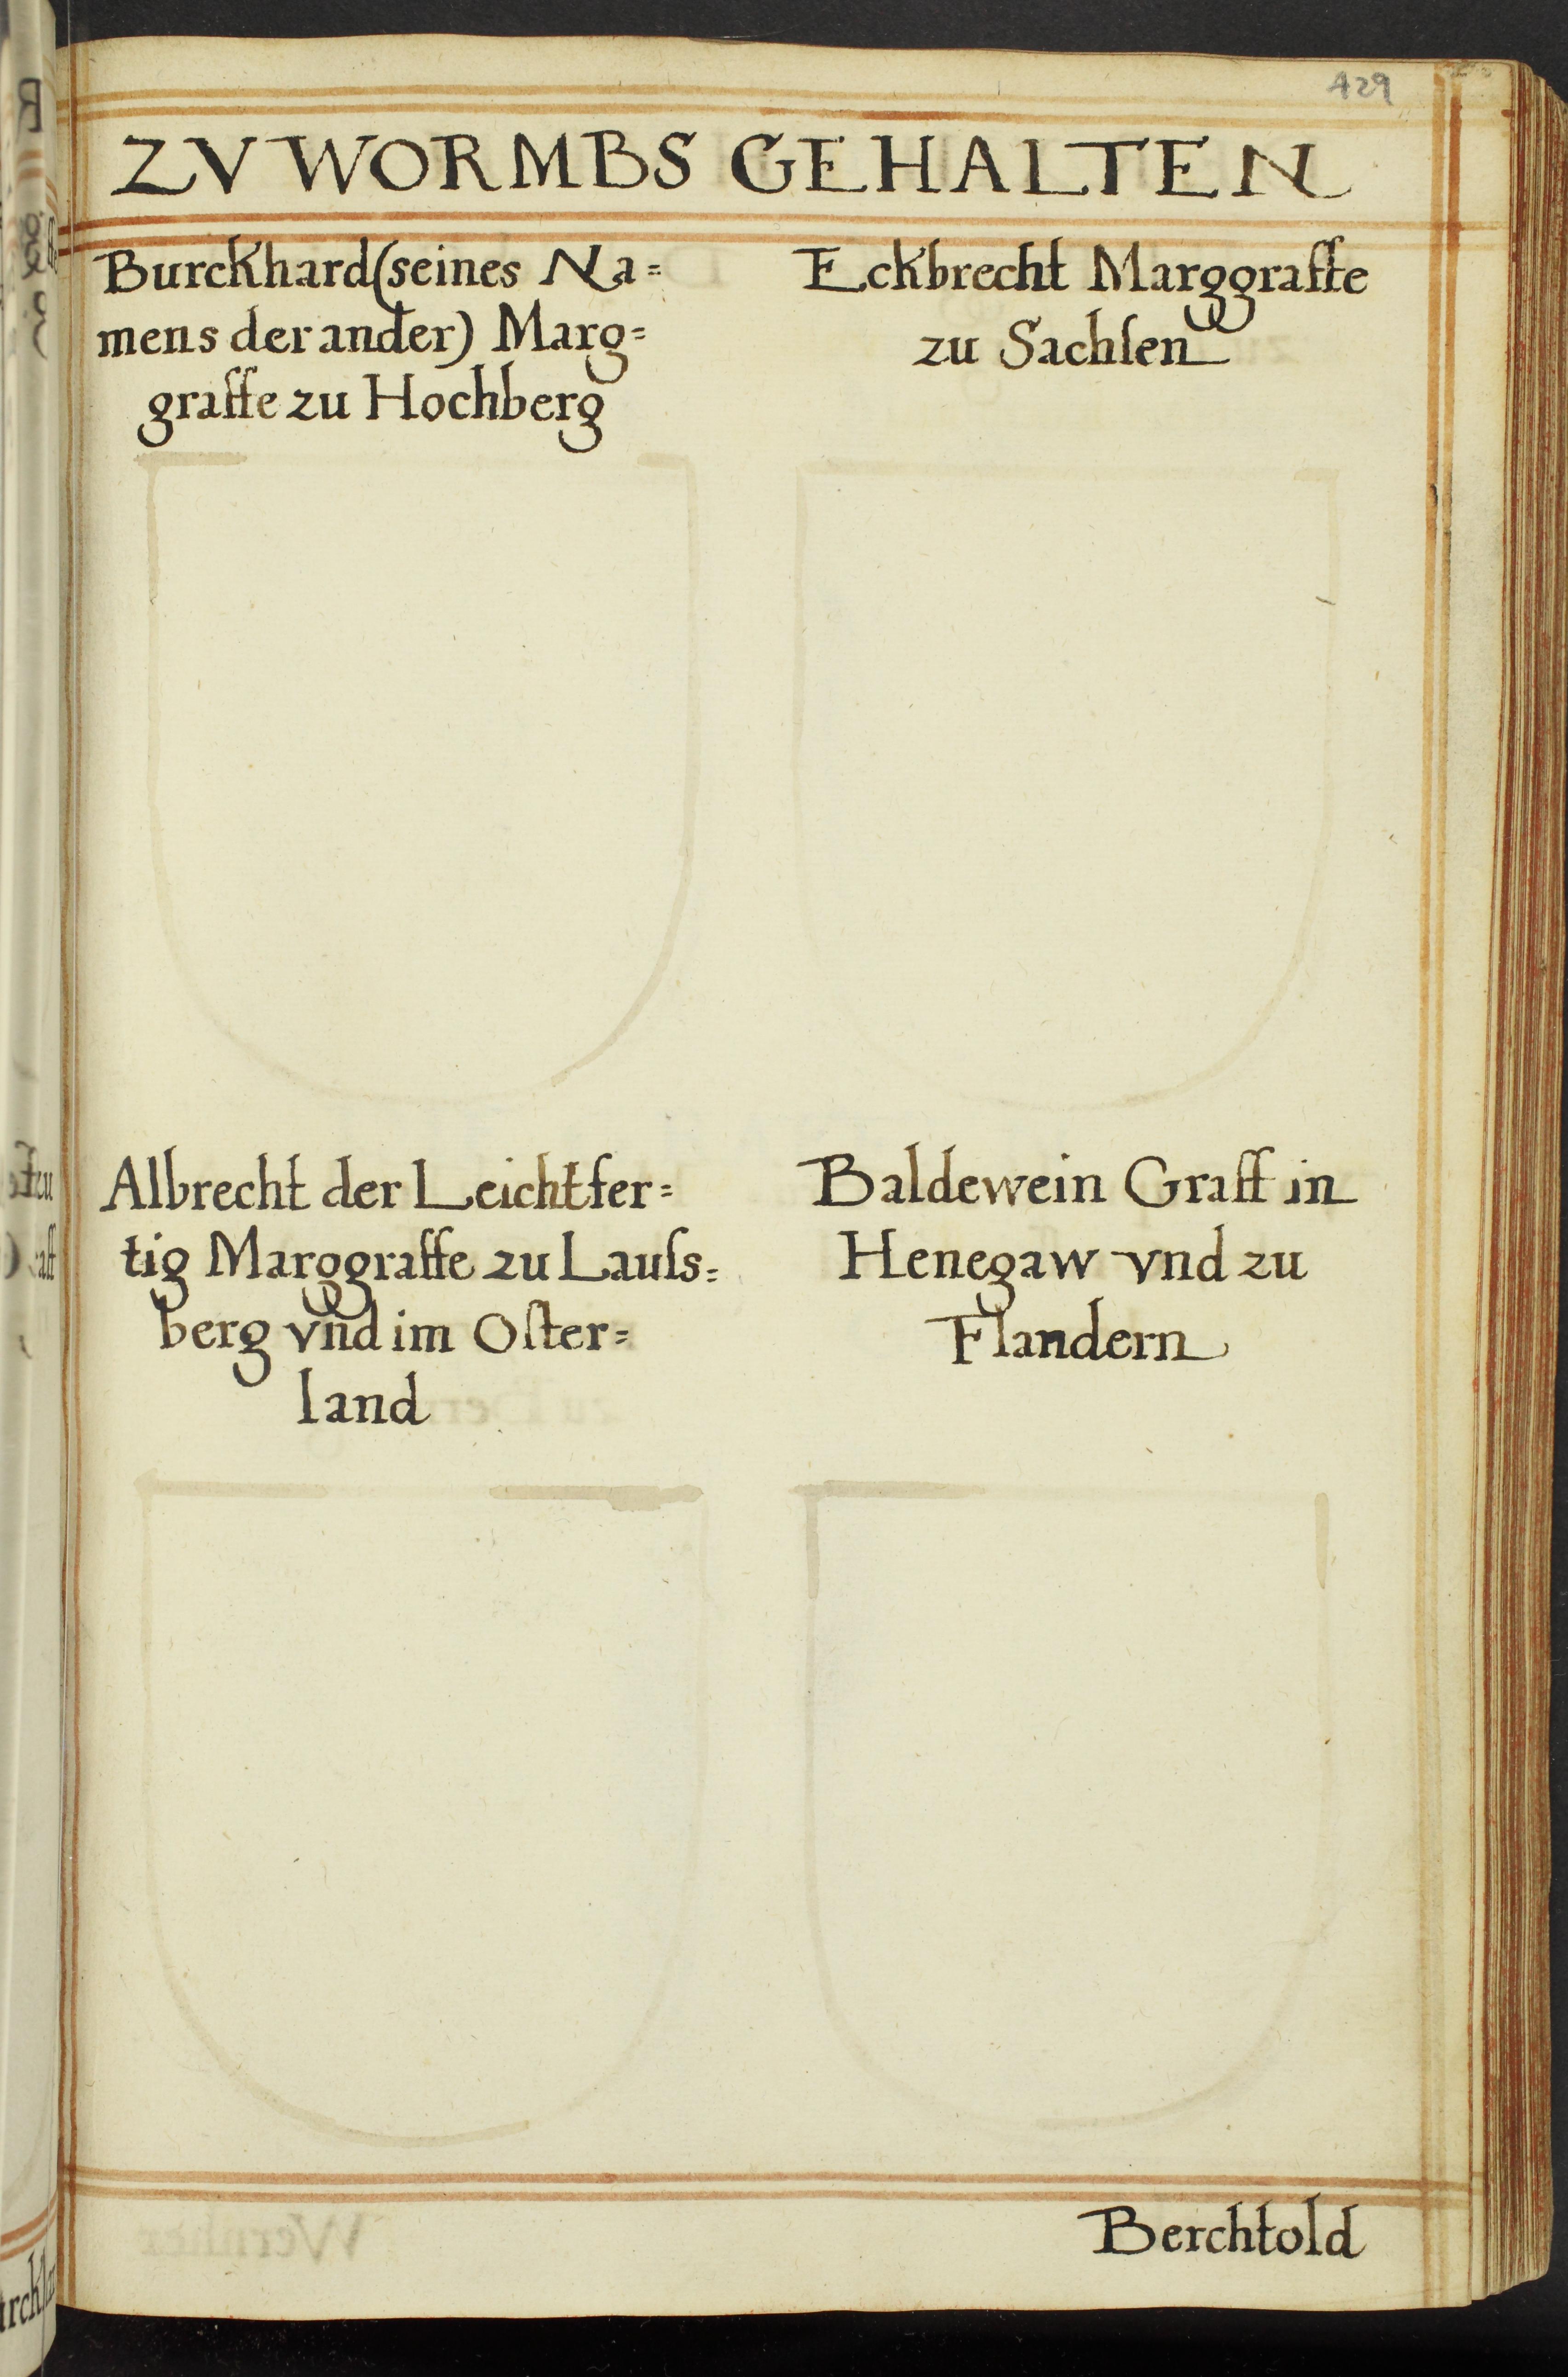 429
ZV WORMBS GEHALTEN
Burckhard (seines Na=
mens der ander) Marg=
graffe zu Hochberg
Eckbrecht Marggraffe
zu Sachſen
Albrecht der Leichtfer=
tig Marggraffe zu Lauſs=
berg vnd im Oſter=
land
Baldewein Graff in
Henegaw vnd zu
Flandern
Berchtold